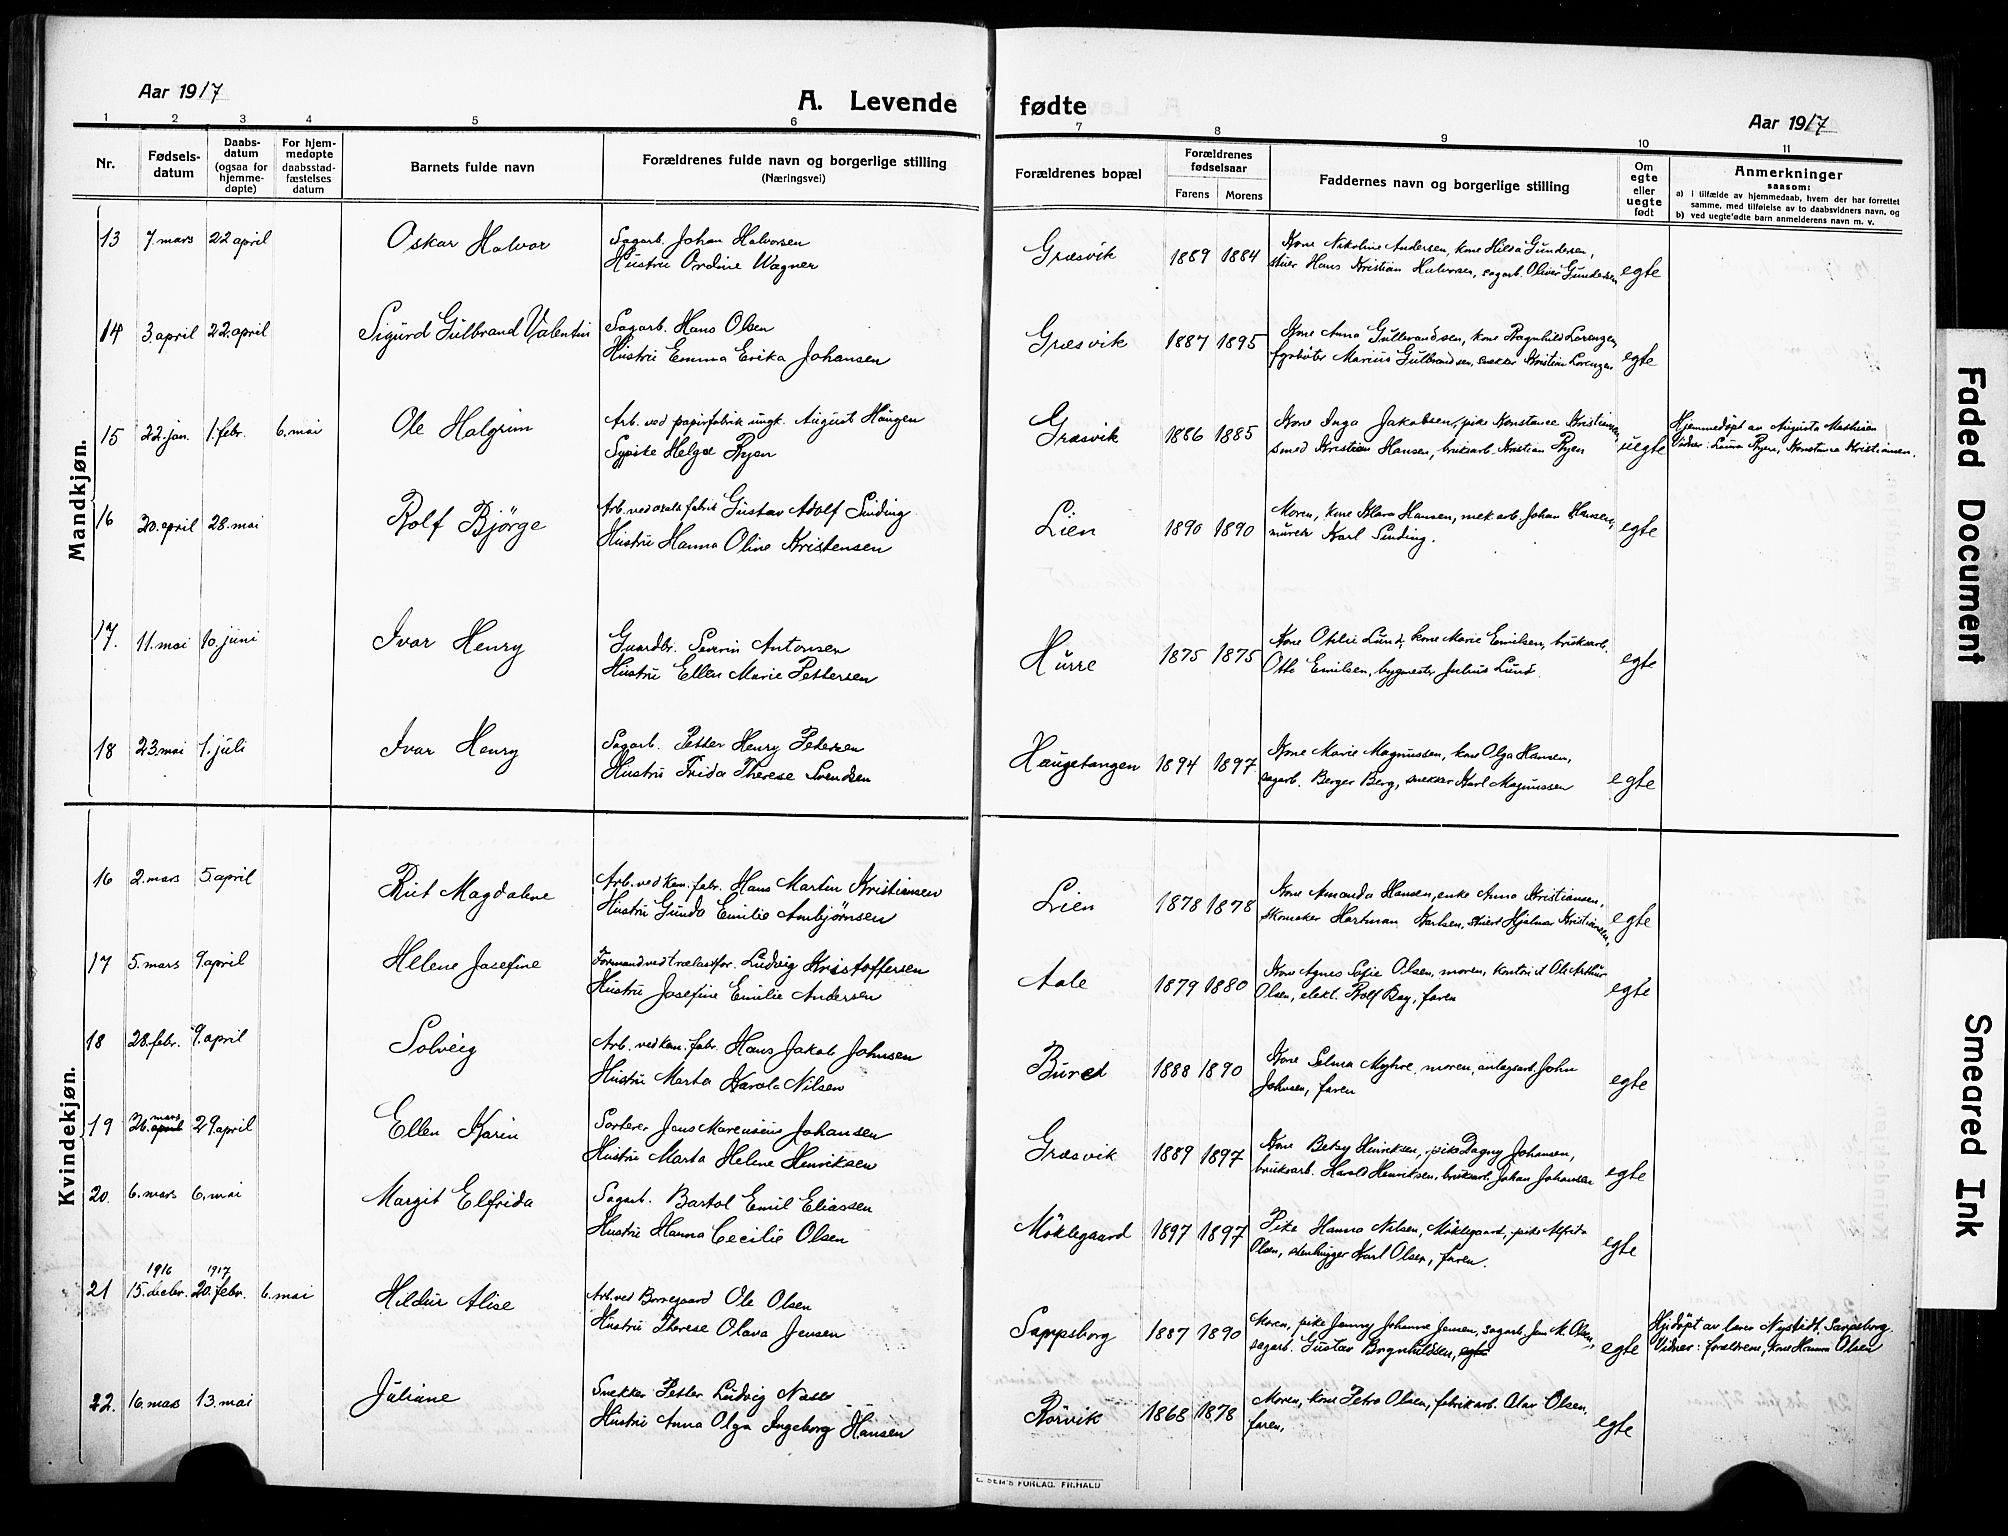 Aar 1917
A. Levende fødte
Aar 1917
1 2 3 4 5 6 7 8 9 10 11
Nr.
Fødsels-
datum
Daabs-
datum
(ogsaa for
hjemme-
døpte)
For hjem-
medøpte
daabsstad-
fæstelses
datum
Barnets fulde navn
Forældrenes fulde navn og borgerlige stilling
(Næringsvei)
Forældrenes bopæl
Forældrenes
fødselsaar
Farens Morens
Faddernes navn og borgerlige stilling
Om
egte
eller
uegte
født
Anmerkninger
saasom:
a) i tilfælde av hjemmedaab, hvem der har forrettet
samme, med tilføielse av to daabsvidners navn, og
b) ved uegte fødte barn anmelderens navn m. v.
Mandkjøn.
13 7. mars 22 april Oskar Halvor
Sagarb. Johan Halvorsen
Hustru Ordine Wagner
Græsvik 1889 1884
Kone Nikoline Andersen, kone Hilda Gundersen,
stuer Hans Kristian Halvorsen, sagarb. Oliver Gundersen
egte
14 3. april 22. april Sigurd Gulbrand Valentin
Sagarb. Hans Olsen
Hustru Emma Erika Johansen
Græsvik 1887 1895
Kone Anna Gulbrandsen, kone Ragnhild Lorenzen,
fyrbøter Marius Gulbrandsen, snekker Kristian Lorenzen
egte
15 22. jan. 1. febr. 6. mai Ole Halgrim
Arb. ved papirfabrik ungk. August Haugen
Sypike Helga Ryen
Græsvik 1886 1885
Kone Inga Jakobsen, pike Konstance Kristiansen,
smed Kristian Hansen, bruksarb. Kristian Ryen
uegte
Hjemmedøpt av Augusta Mathisen
Vidner: Laura Ryen, Konstance Kristiansen.
16 20. april 28. mai Rolf Bjørge
Arb. ved fabrik Gustav Adolf Sinding
Hustru Hanna Oline Kristensen
Lien 1890 1890
Moren, kone Klara Hansen, mek. arb. Johan Hansen,
murer Karl Sinding.
egte
17. 11. mai 10. juni Ivar Henry
Gaardbr. Severin Antonsen
Hustru Ellen Marie Pettersen
Hurre 1875 1875
Kone Lund, kone Marie Emilsen, bruksarb.
Otto Emilsen, bygmester Julius Lund.
egte
18 23. mai 1. juli Ivar Henry
Sagarb. Petter Henry Petersen
Hustru Frida Therese Svendsen
Haugetangen 1894 1897
Kone Marie Magnussen, kone Olga Hansen,
sagarb. Berger Berg, snekker Karl Magnussen
egte
Kvindekjøn.
16 2. mars 5 april Rut Magdalene
Arb. ved kem. fabr. Hans Martin Kristiansen
Hustru Gunda Emilie Ambjørnsen
Lien 1878 1878
Kone Amanda Hansen, enke Anna Kristiansen,
skomaker Hartman Karlsen, stuert Hjalmar Kristiansen,
egte
17 5. mars 9. april Helene Josefine
Formand ved trælastfor. Ludvig Kristoffersen
Hustru Josefine Emilie Andersen
Aale 1879 1880
Kone Agnes Sofie Olsen, moren, kontorist Ole Arthur
Olsen, elekt. Rolf Bay, faren
egte
18 28. febr. 9. april Solveig
Arb. ved kem. fabr. Hans Jakob Johnsen
Hustru Marta Karola Nilsen
Bured 1888 1890
Kone Selma Myhre, moren, anlægsarb. John
Johnsen, faren
egte
19 26. mars april 29 april Ellen Karin
Sorterer Jens Marensius Johansen
Hustru Marta Helene Henriksen
Græsvik 1889 1897
Kone Betsy Henriksen, pike Dagny Johansen,
bruksarb. Harald Henriksen, bruksarb. Johan Johansen
egte
20. 6. mars 6. mai Margit Elfrida
Sagarb. Bartol Emil Eliassen
Hustru Hanna Cecilie Olsen
Møklegaard 1897 1897
Pike Hanna Nilsen, Møklegaard, pike Alfrida
Olsen, stenhugger Karl Olsen, faren.
egte
21 1916 15. decbr. 1917 20. febr. 6. mai Hildur Alise
Arb. ved Borregaard Ole Olsen
Hustru Therese Olava Jensen
Sarpsborg 1887 1890
Moren, pike Jenny Johanne Jensen, sagarb. Jens M. Olsen,
sagarb. Gustav Brynhildsen, egte
egte
Hj.døpt av lærer Nystedt, Sarpsborg.
Vidner: forældrene, kone Hanna Olsen
22. 16. mars 13. mai Juliane
Snekker Petter Ludvig Næss
Hustru Anna Olga Ingeborg Hansen
Rørvik 1868 1878
Moren, kone Petra Olsen, fabrikarb. Olav Olsen,
faren,
egte
E. SEM'S FORLAG. FR.HALD
Faded Document
Smeared Ink